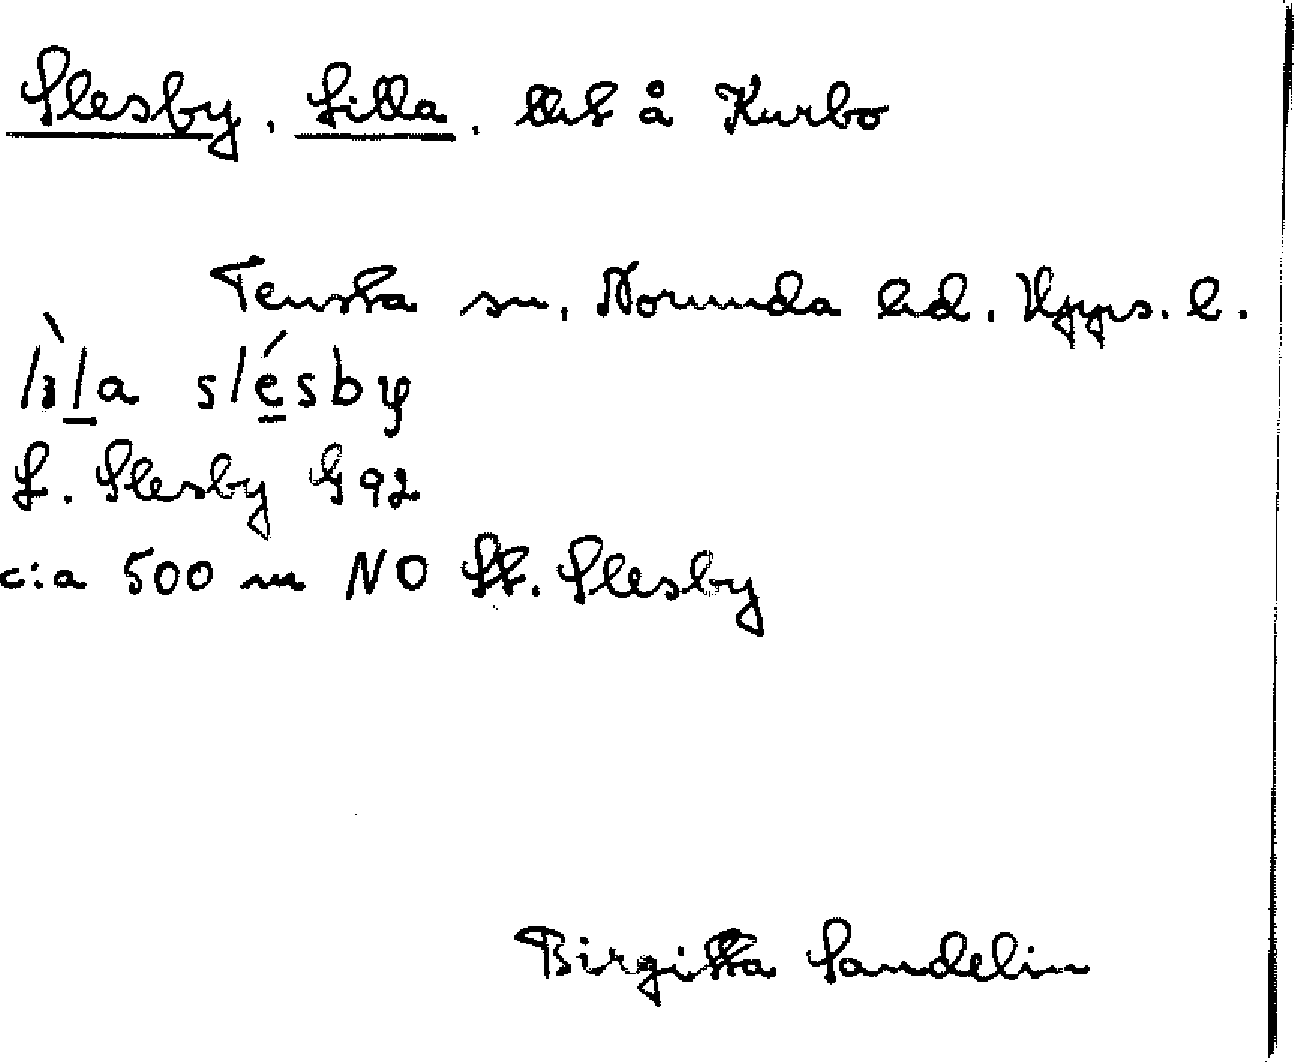 Slesby, Lilla, tkt å Kurbo
Tensta sn. Norunda hd. Upps. l.
lìla slésby
L. Slesby G 92
c:a 500 m NO St. Slesby
Birgitta Sandelin